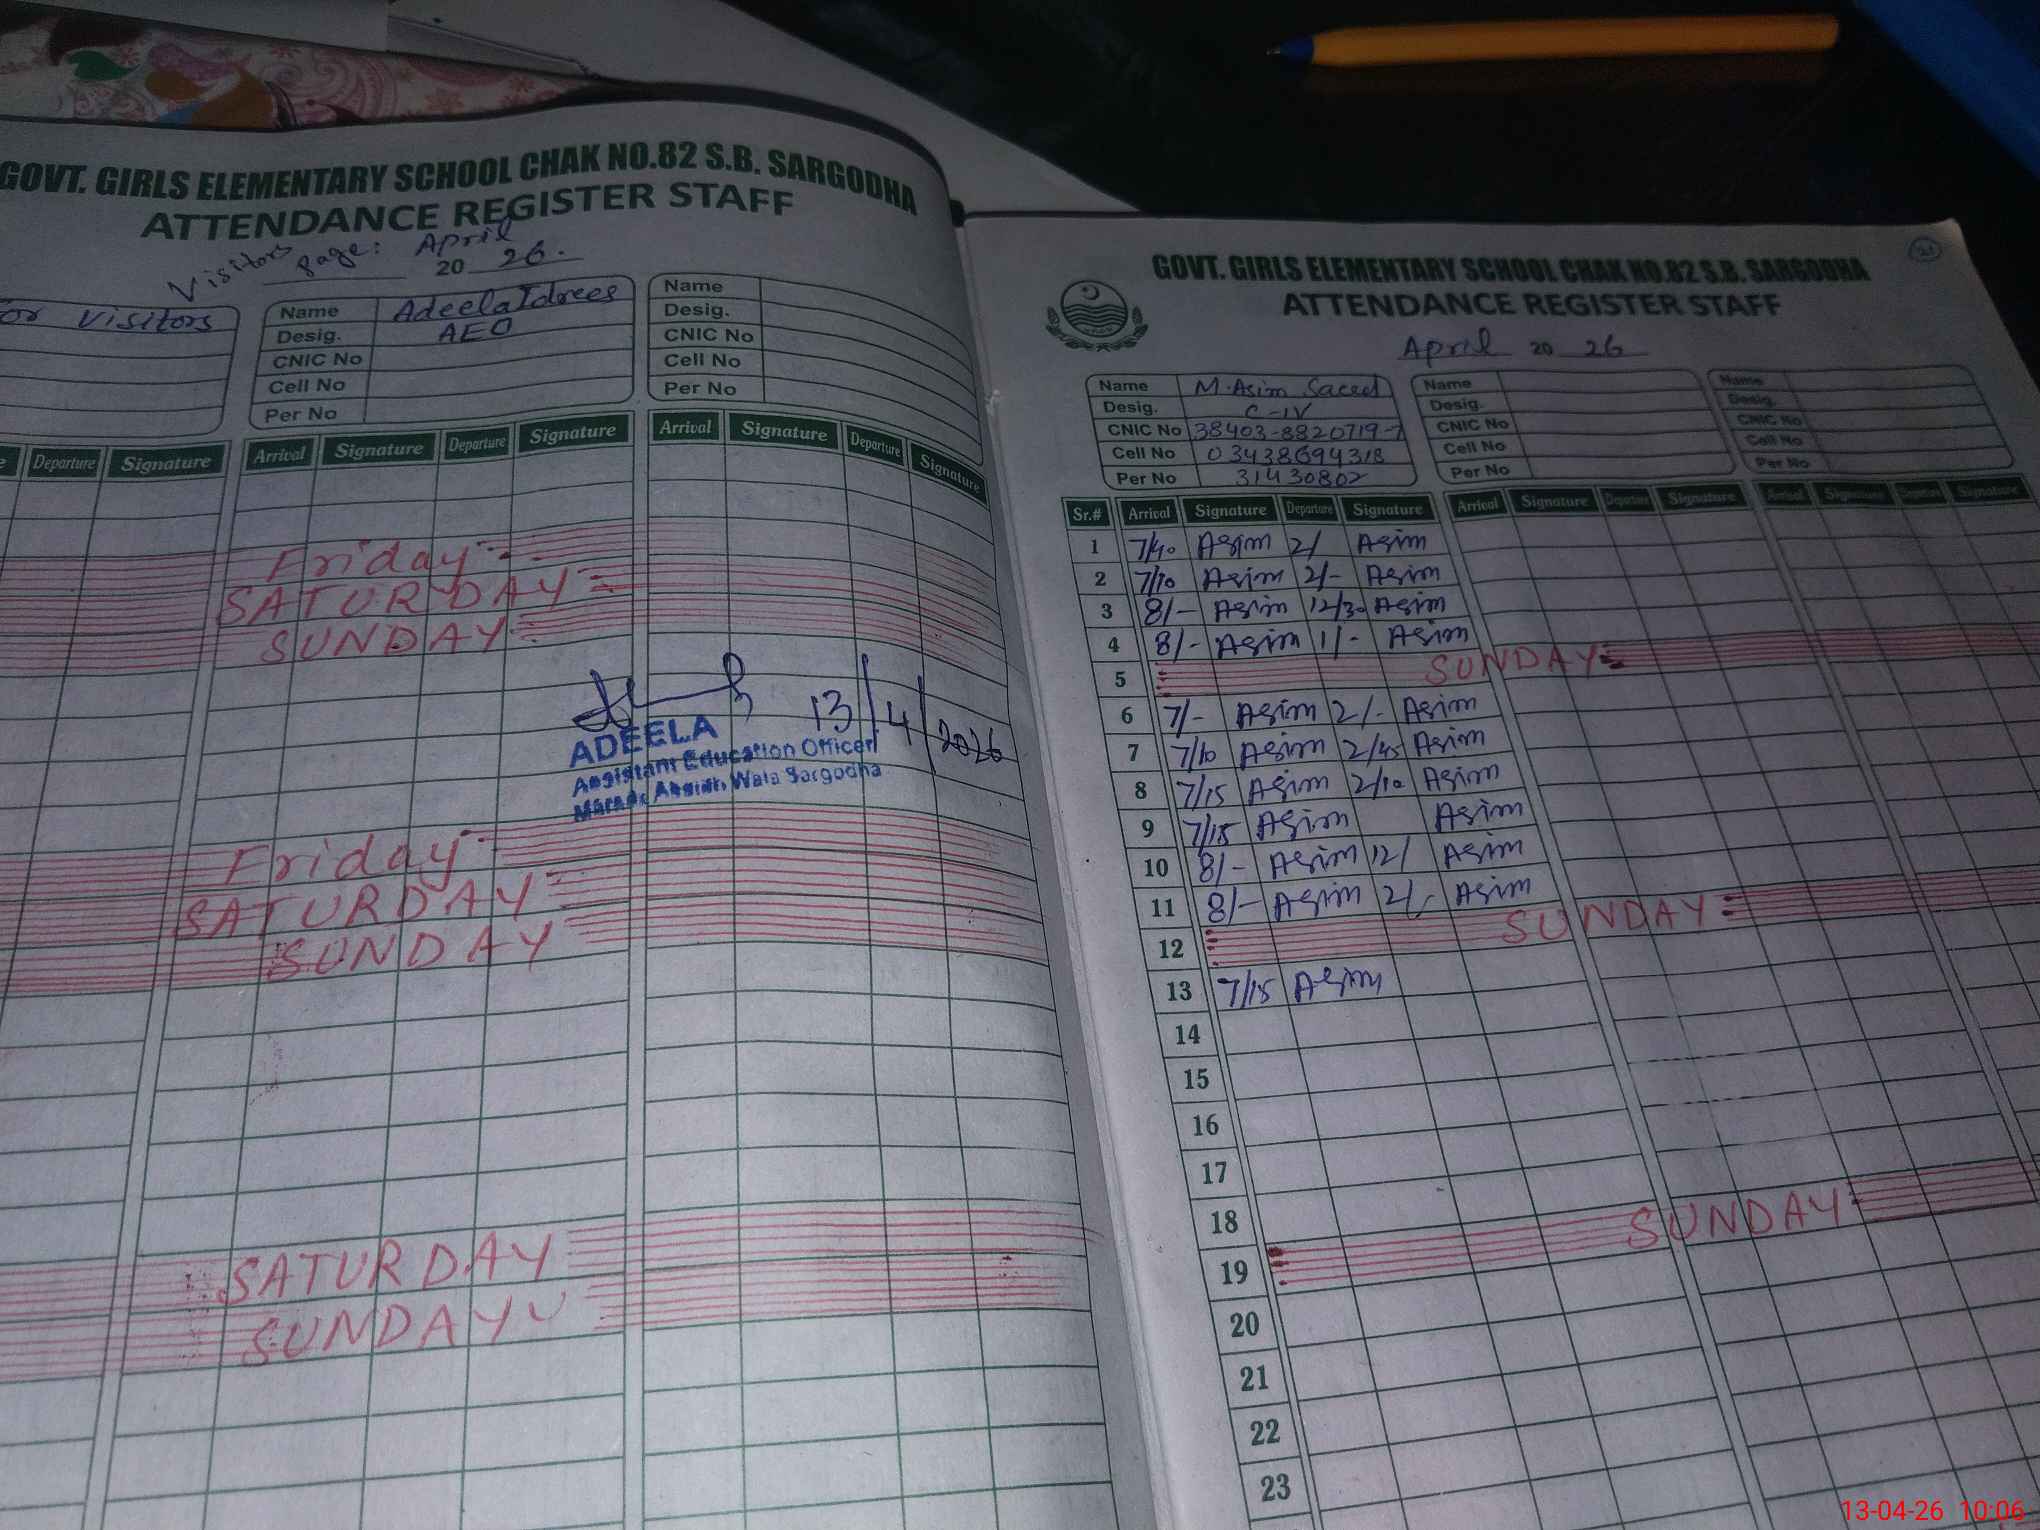 GOVT. GIRLS ELEMENTARY SCHOOL CHAK NO.82 S.B. SARGODHA
ATTENDANCE REGISTER STAFF
Visitors page: April
20 26.
or visitors
Name Adeela Idrees
Desig. AEO
CNIC No
Cell No
Per No
Name
Desig.
CNIC No
Cell No
Per No
Departure Signature Arrival Signature Departure Signature Arrival Signature Departure Signature
Friday
SATURDAY
SUNDAY
13/4/2026
ADEELA
Assistant Education Officer
Wala Sargodha
Friday
SATURDAY
SUNDAY
SATURDAY
SUNDAY
21
GOVT. GIRLS ELEMENTARY SCHOOL CHAK NO.82 S.B. SARGODHA
ATTENDANCE REGISTER STAFF
April 20 26
Name M. Asim Saeed
Desig. C-IV
CNIC No 38403-8820719-7
Cell No 03438694318
Per No 31430802
Name
Desig.
CNIC No
Cell No
Per No
Name
Desig.
CNIC No
Cell No
Per No
Sr.# Arrival Signature Departure Signature Arrival Signature Departure Signature Arrival Signature Departure Signature
1 7/40 Asim 2/ Asim
2 7/10 Asim 2/- Asim
3 8/- Asim 12/30 Asim
4 8/- Asim 1/- Asim
5 SUNDAY
6 7/- Asim 2/- Asim
7 7/10 Asim 2/45 Asim
8 7/15 Asim 2/10 Asim
9 7/15 Asim Asim
10 8/- Asim 12/ Asim
11 8/- Asim 2/- Asim
12 SUNDAY
13 7/15 Asim
14
15
16
17
18
19 SUNDAY
20
21
22
23
13-04-26 10:06